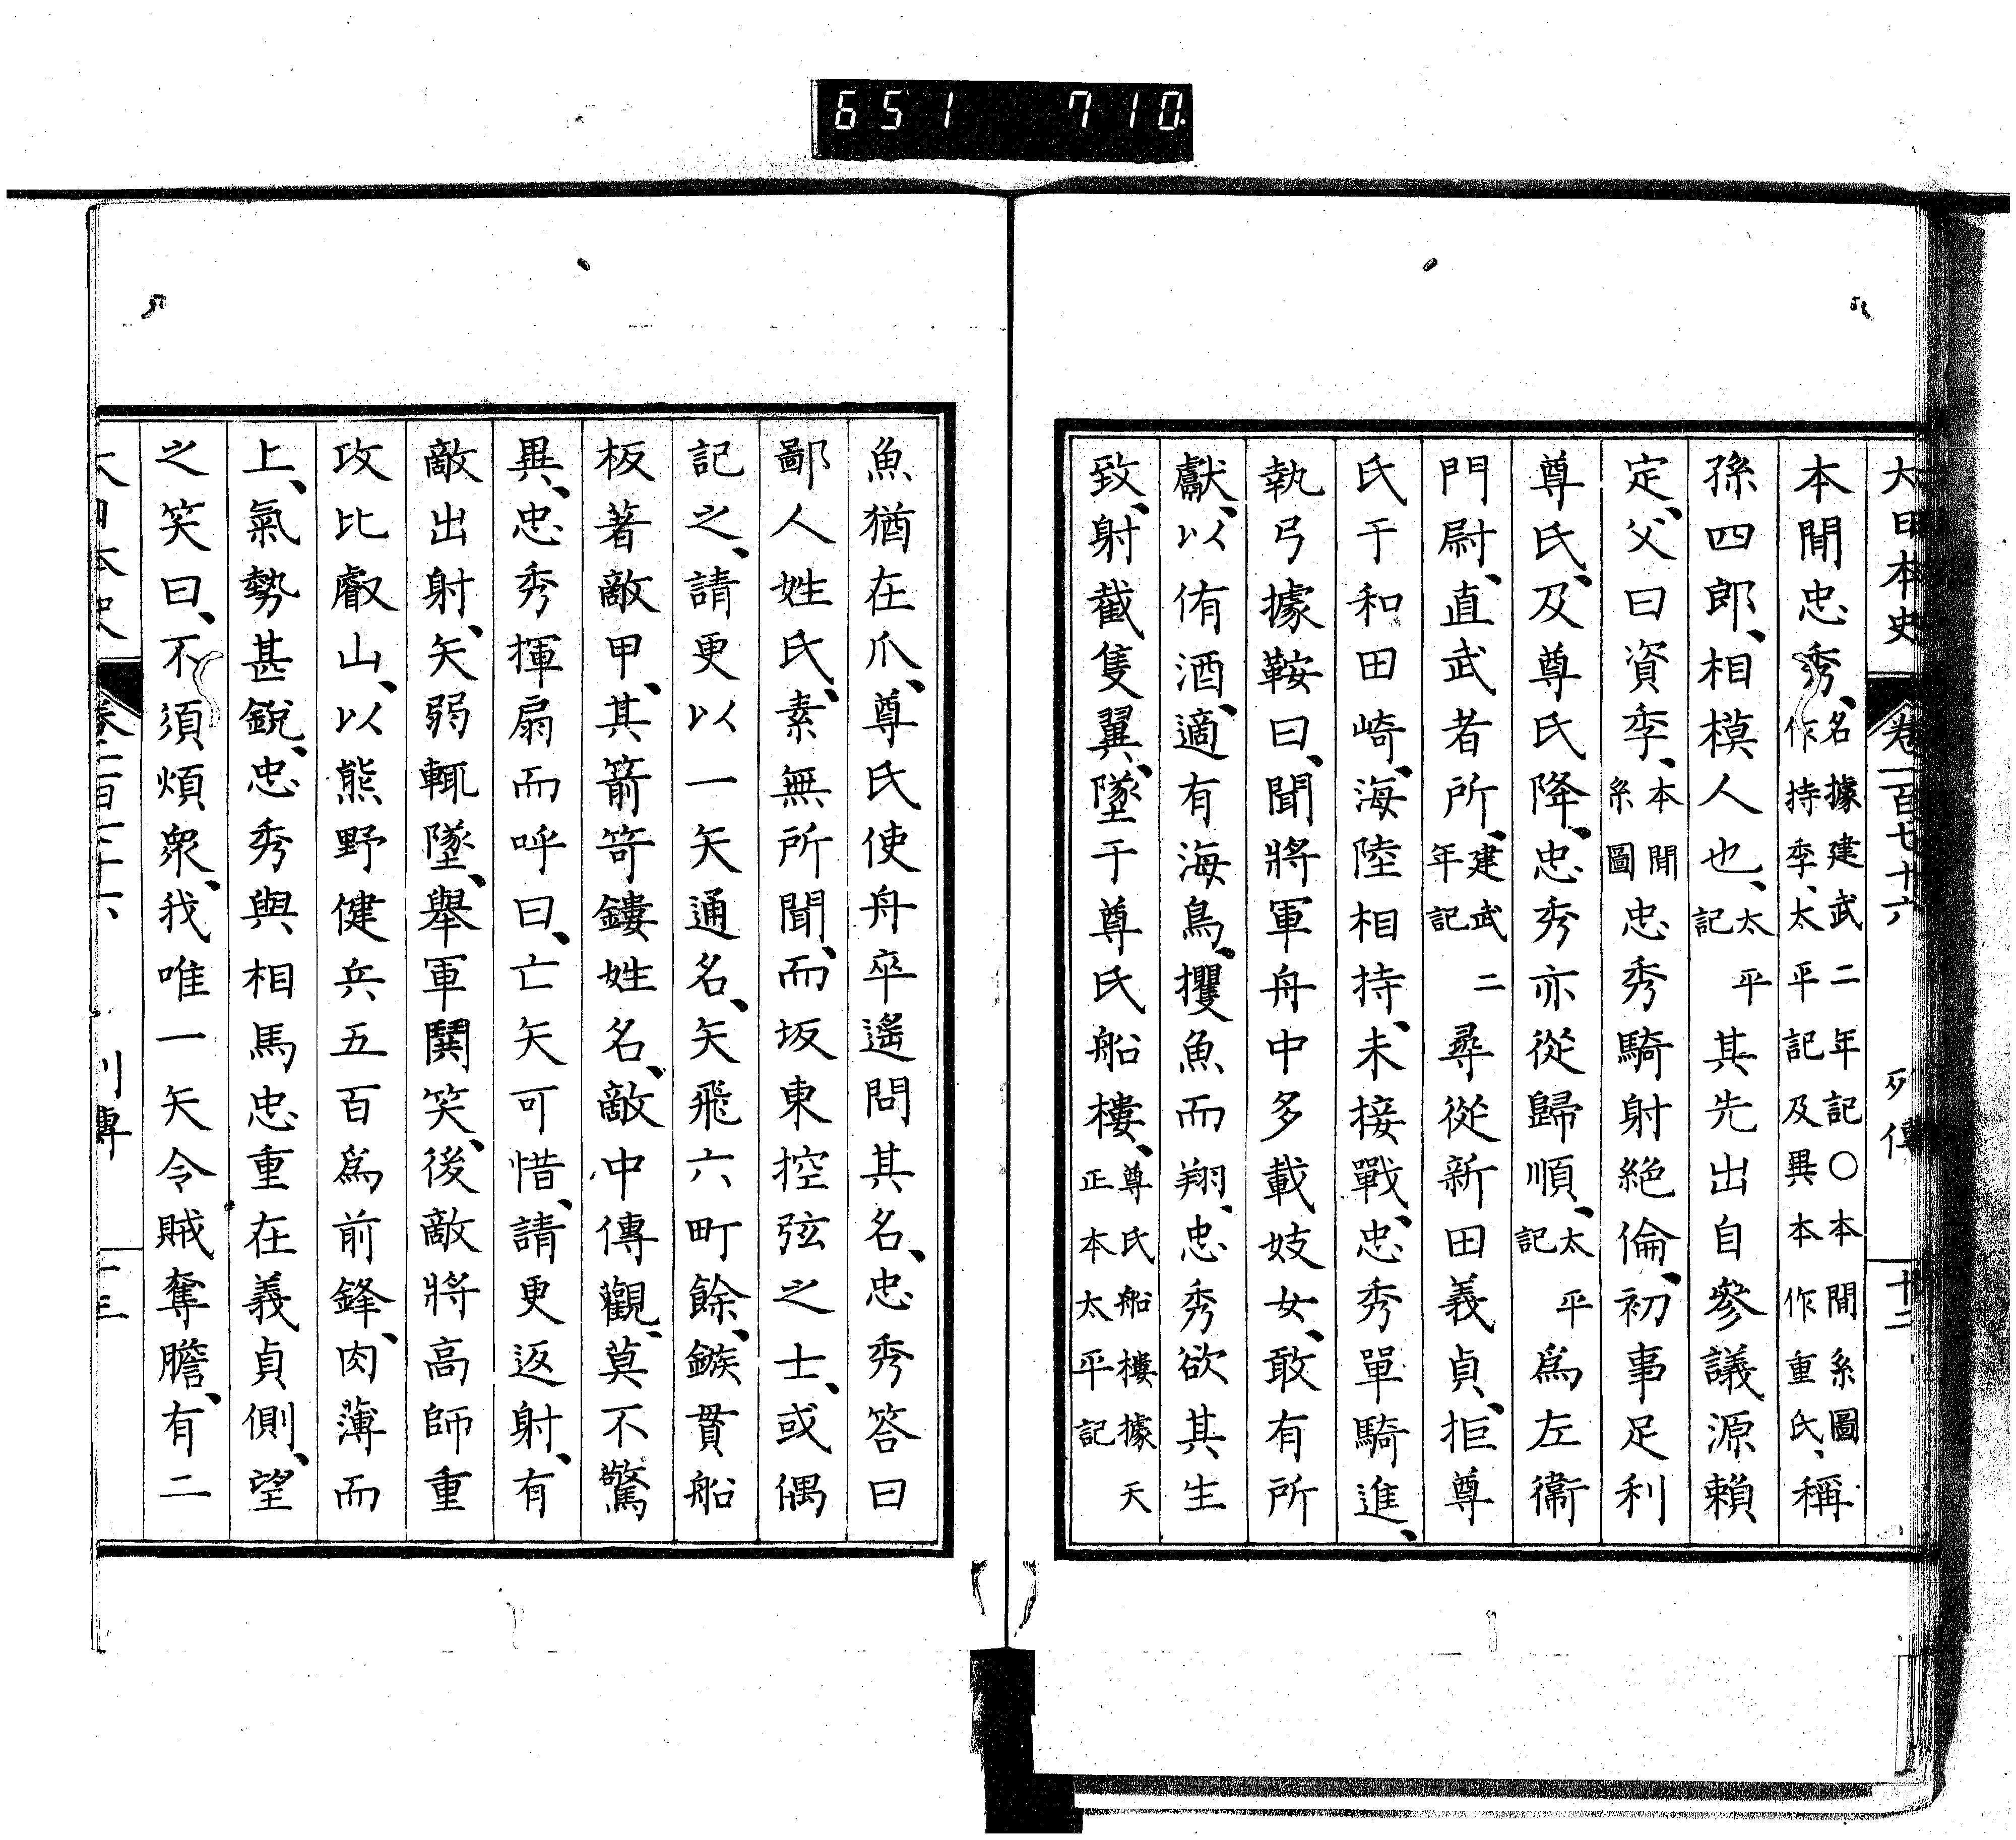 651 710
大日本史 卷一百七十六 列傳 十二
本間忠秀、名據建武二年記○本間系圖作持季、太平記及異本作重氏、稱
孫四郎、相模人也、太平記其先出自參議源賴
定、父曰資季、本間系圖忠秀騎射絶倫、初事足利
尊氏、及尊氏降、忠秀亦從歸順、太平記爲左衞
門尉、直武者所、建武二年記尋從新田義貞、拒尊
氏于和田崎、海陸相持、未接戰、忠秀單騎進、
執弓據鞍曰、聞將軍舟中多載妓女、敢有所
獻、以侑酒、適有海鳥、攫魚而翔、忠秀欲其生
致、射截隻翼、墜于尊氏船樓、尊氏船樓據天正本太平記
魚猶在爪、尊氏使舟卒遙問其名、忠秀答曰
鄙人姓氏、素無所聞、而坂東控弦之士、或偶
記之、請更以一矢通名、矢飛六町餘、鏃貫船
板著敵甲、其箭笴鏤姓名、敵中傳觀、莫不驚
異、忠秀揮扇而呼曰、亡矢可惜、請更返射、有
敵出射、矢弱輒墜、舉軍鬨笑、後敵將高師重
攻比叡山、以熊野健兵五百爲前鋒、肉薄而
上、氣勢甚銳、忠秀與相馬忠重在義貞側、望
之笑曰、不須煩衆、我唯一矢令賊奪膽、有二
大日本史 卷一百七十六 列傳 十三